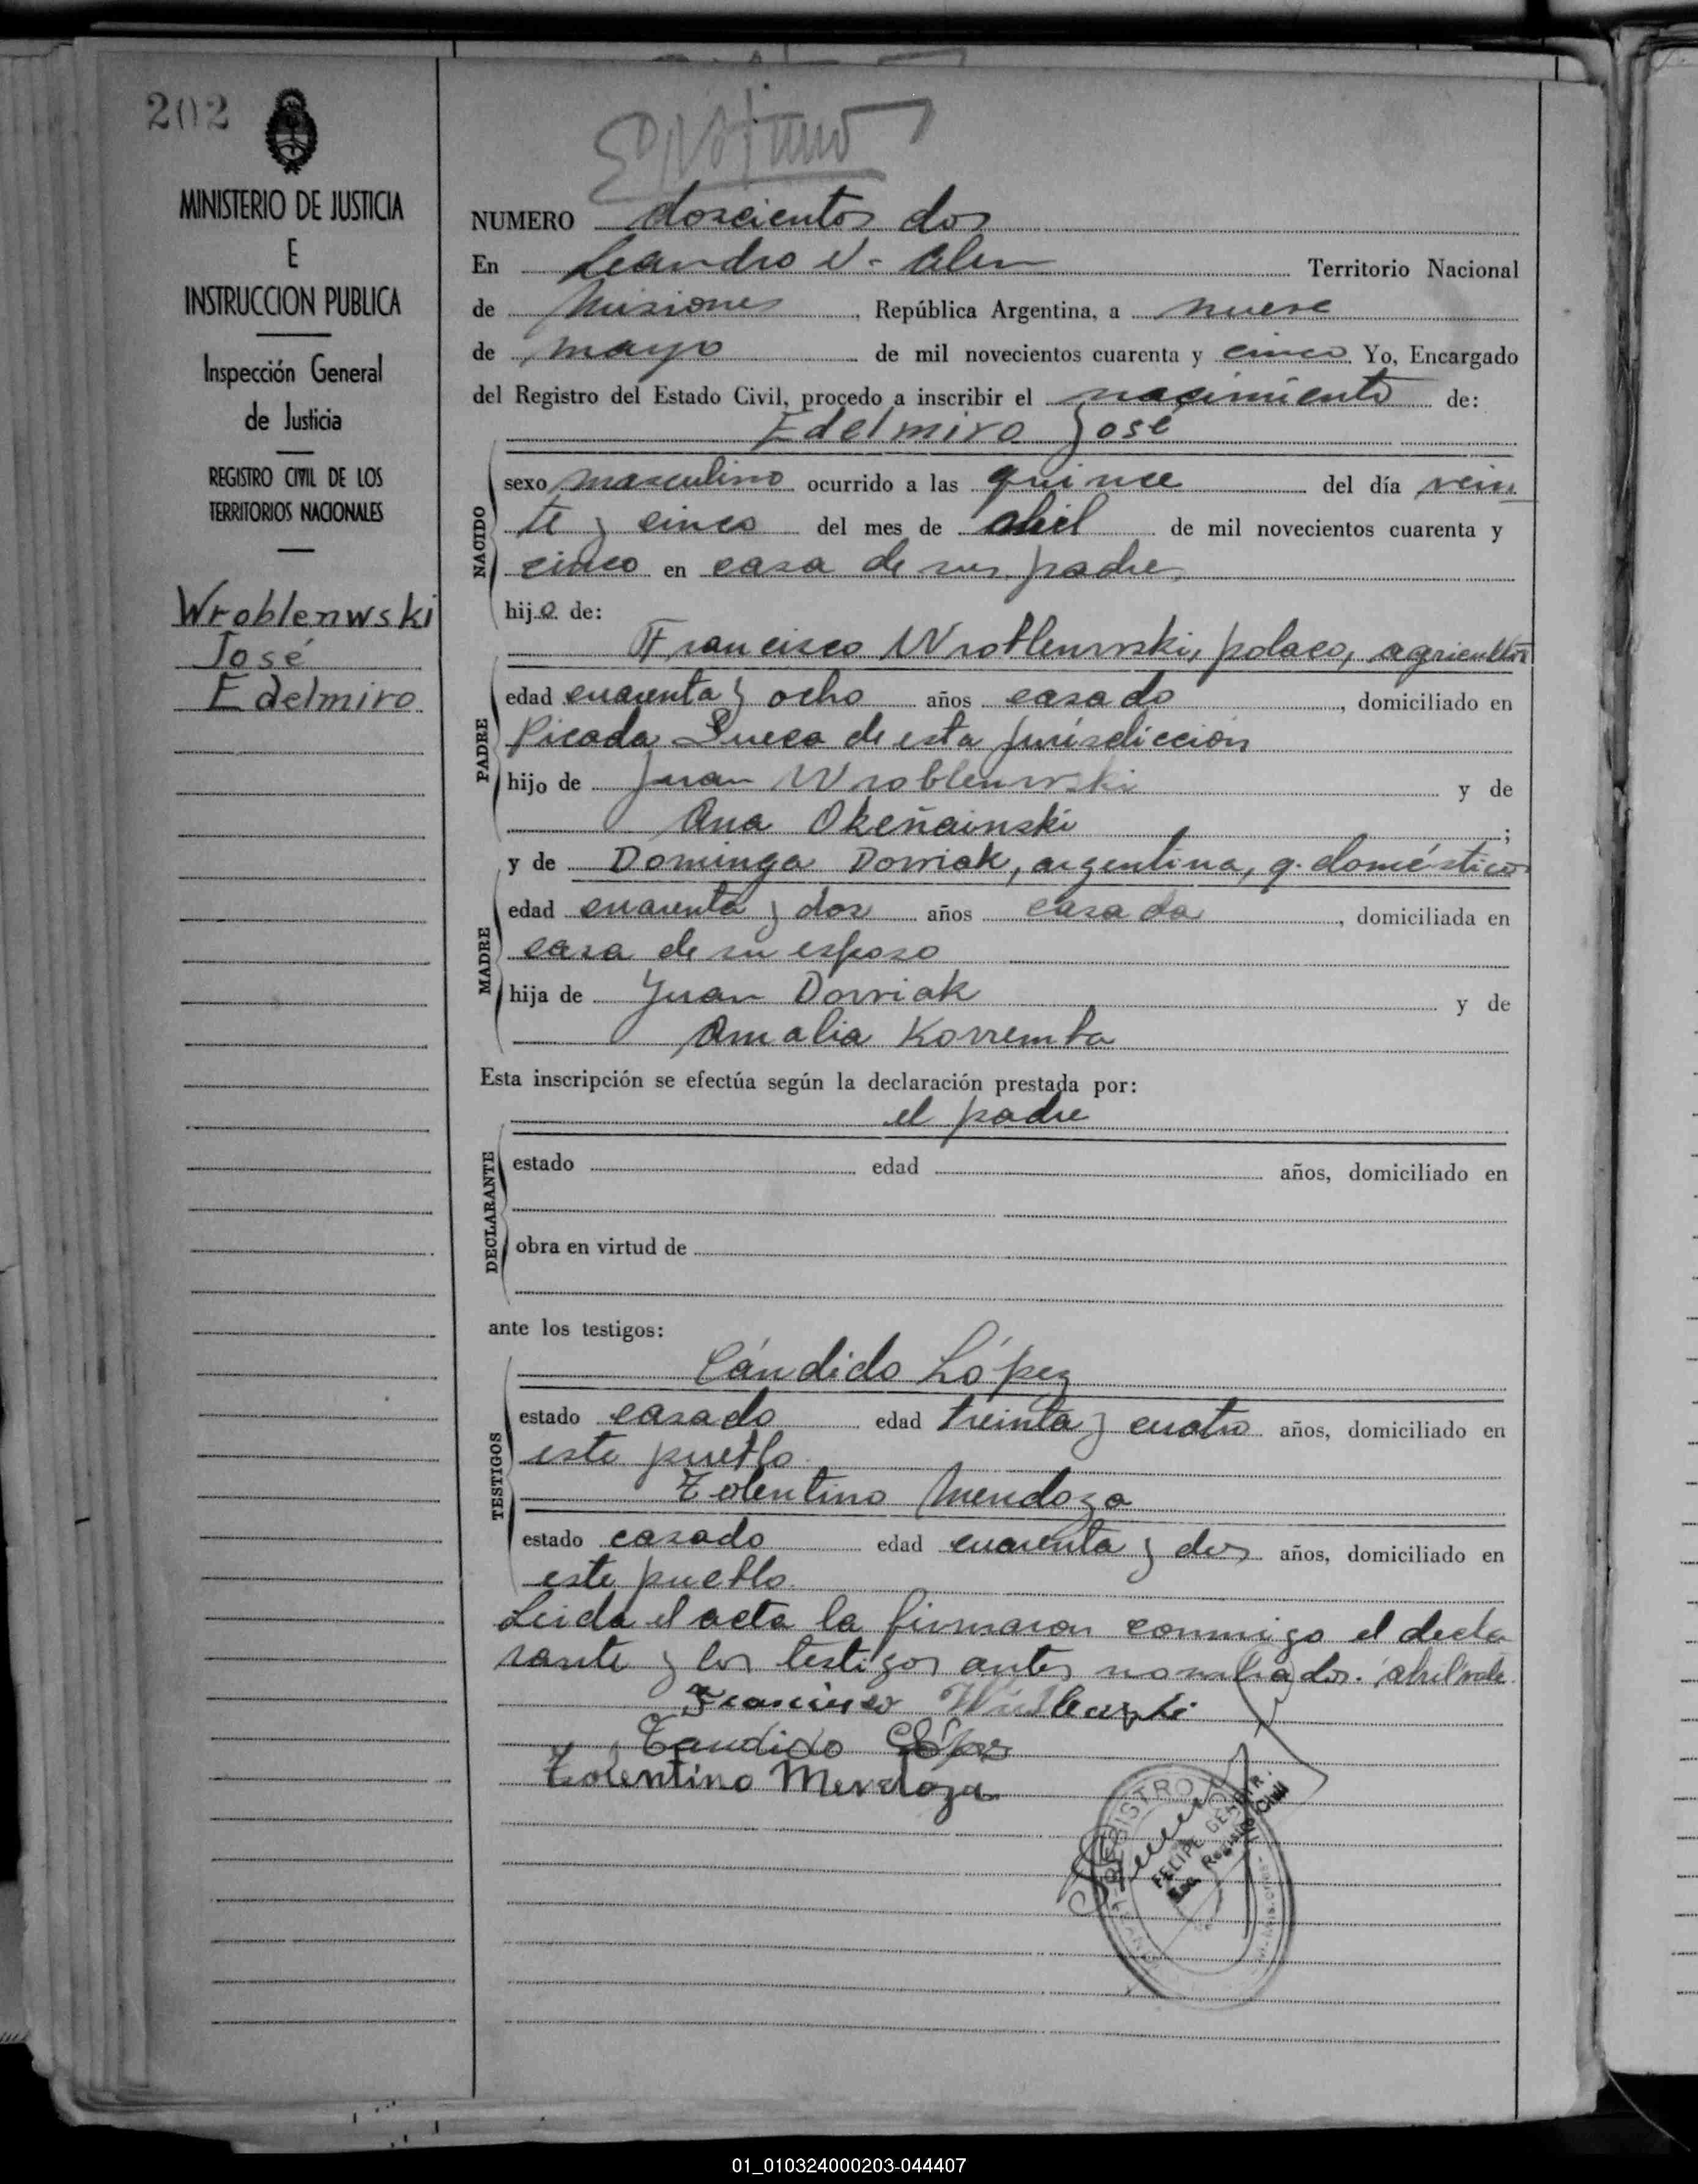 202
MINISTERIO DE JUSTICIA
E
INSTRUCCION PUBLICA
Inspección General
de Justicia
REGISTRO CIVIL DE LOS
TERRITORIOS NACIONALES
Wroblenwski
José
Edelmiro
NUMERO doscientos dos
En Leandro N. Alem Territorio Nacional
de Misiones, República Argentina, a nueve
de mayo de mil novecientos cuarenta y cinco Yo, Encargado
del Registro del Estado Civil, procedo a inscribir el nacimiento de:
Edelmiro José
NACIDO
sexo masculino ocurrido a las quince del día vein
te y cinco del mes de abril de mil novecientos cuarenta y
cinco en casa de sus padres
hijo de:
PADRE
Francisco Wroblenwski, polaco, agricultor
edad cuarenta y ocho años casado, domiciliado en
Picada Sueca de esta jurisdicción
hijo de Juan Wroblenwski y de
Ana Okeñainski;
MADRE
y de Dominga Dowiak, argentina, q. domésticos
edad cuarenta y dos años casada, domiciliada en
casa de su esposo
hija de Juan Dowiak y de
Amalia Korremba
Esta inscripción se efectúa según la declaración prestada por:
el padre
DECLARANTE
estado edad años, domiciliado en
obra en virtud de
ante los testigos:
TESTIGOS
Cándido López
estado casado edad treinta y cuatro años, domiciliado en
este pueblo.
Tolentino Mendoza
estado casado edad cuarenta y dos años, domiciliado en
este pueblo.
Leida el acta la firmaron conmigo el decla
rante y los testigos antes nombrados. "abril" vale.
Francisco
Candido López
Tolentino Mendoza
REGISTRO
FELIPE
Enc. Registro Civil
01_010324000203-044407